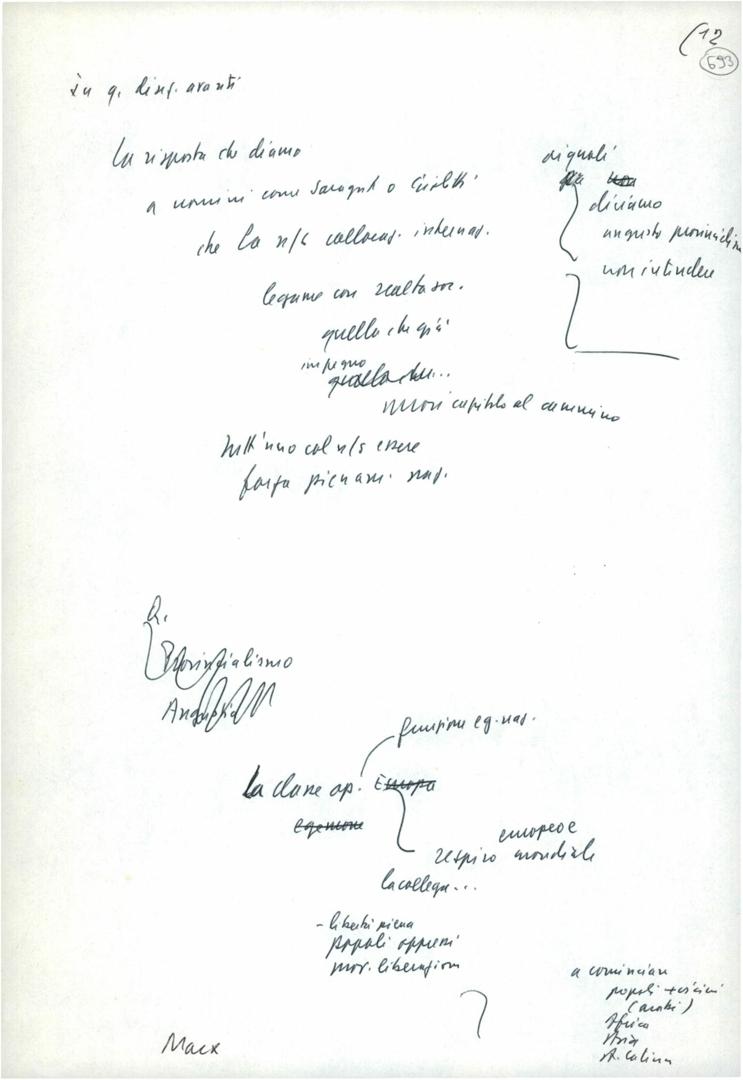 (12
693
in q. disc. avanti
La risposta che diamo
a uomini come Saragat o Giolitti
che la n/s collocaz. internaz.
legame con realtà soc.
quello che già
impegno
quello che...
nuovi capitolo al cammino
tutt'uno col n/s essere
forza pienam. naz.
ai quali
non
diciamo
angusto provincialismo
non intendere
Q.
Provincialismo
Angustia
funzione eg. naz.
La classe op. Europa
egemone
europeo e
respiro mondiale
la collega...
- libertà piena
popoli oppressi
mov. liberazione
?
a cominciare
popoli + vicini
(arabi)
Africa
Asia
A. Latina
Marx